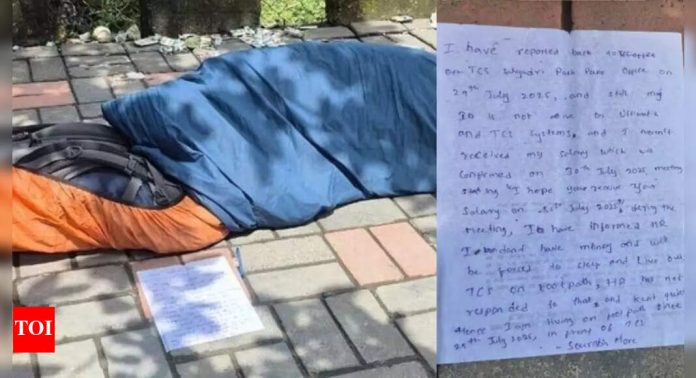 I have reported back to office
on TCS Sahyadri Park Pune Office on
29th July 2025, and still my
ID is not active on Ultimatix
and TCS Systems, and I
received my salary which was
confirmed on 30th July 2025 meeting
hope you receive your
salary on 31st July 2025, during the
meeting, I have informed HR
I dont have money and will
be forced to sleep and live out
TCS on footpath, HR has not
responded to that, and kept quiet
Hence I am living on footpath since
29th July 2025, in front of TCS
- Saurabh More
TOI